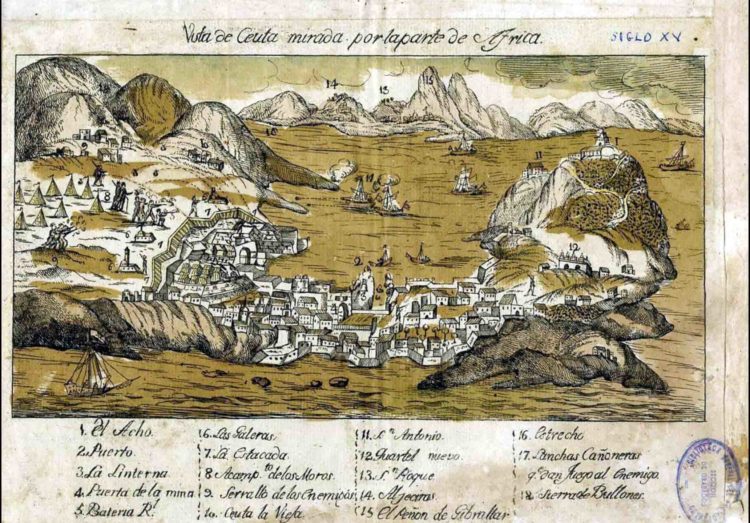 Vista de Ceuta mirada por la parte de Africa.
SIGLO XV
1. El Acho.
2. Puerto
3. La Linterna
4. Puerta de la mina
5. Bateria Rl.
6. Las Galeras.
7. La Estacada
8. Acampto. de los Moros.
9. Serrallo de los Enemigos
10. Ceuta la Vieja
11. Sn. Antonio.
12. Quartel nuevo.
13. Sn. Roque
14. Aljeciras
15. El Peñon de Gibraltar
16. Estrecho
17. Lanchas Cañoneras
q. dan fuego al Enemigo.
18. Sierra de Bullones.